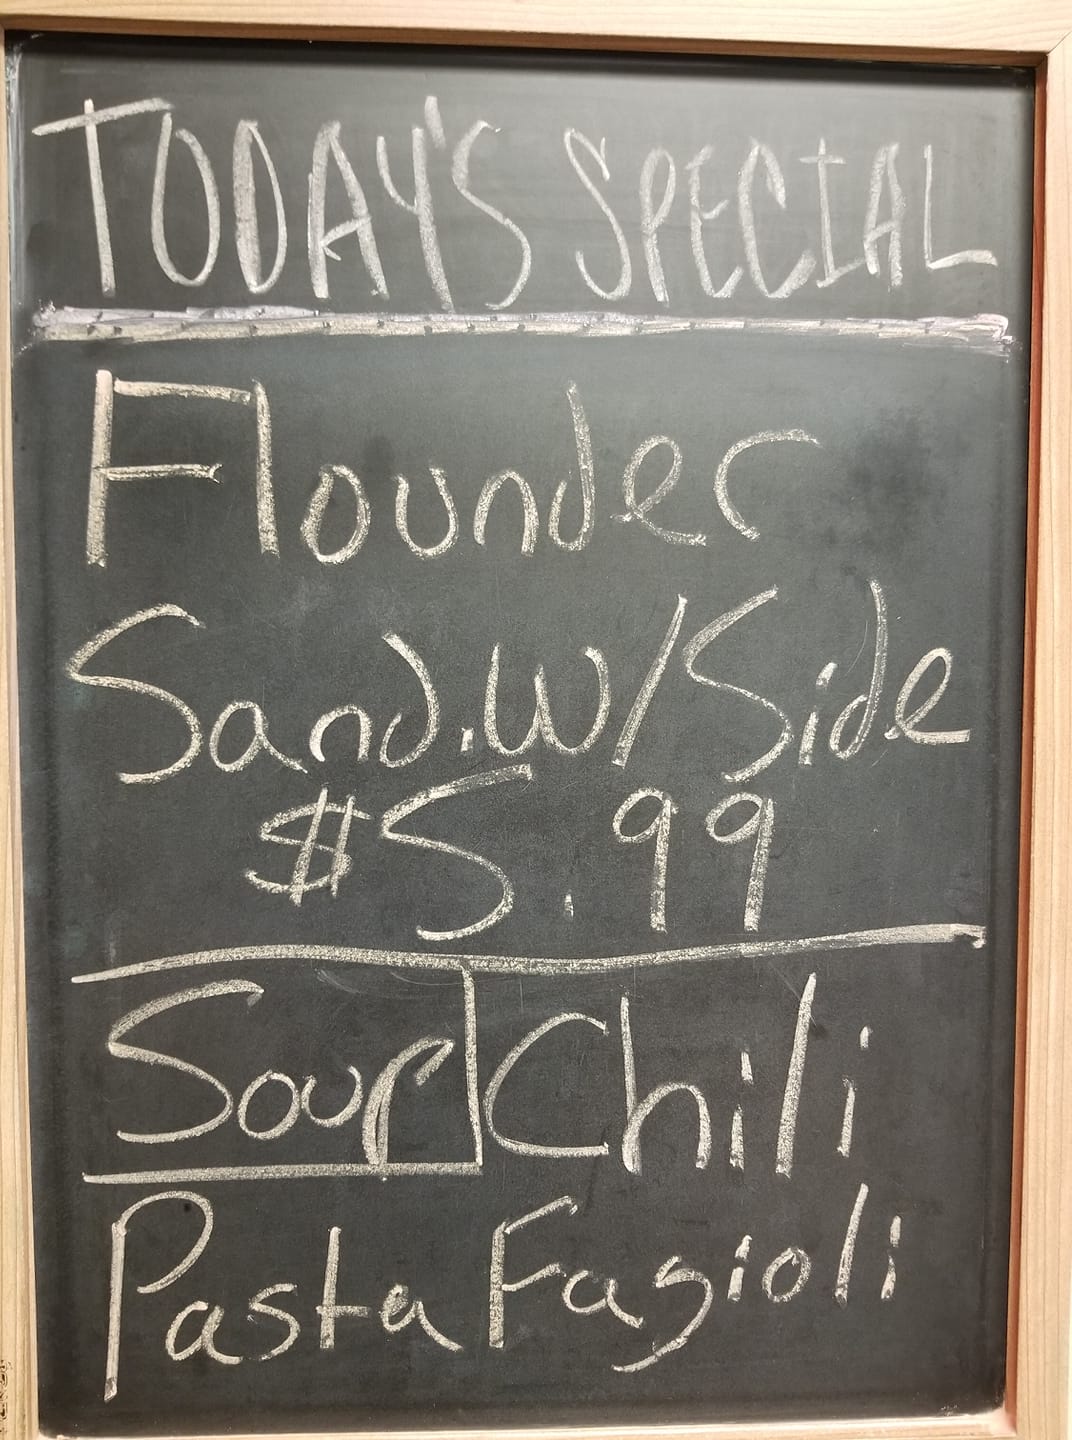 TODAY'S SPECIAL
Flounder
Sand. W/Side
$5.99
Soup Chili
Pasta Fagioli